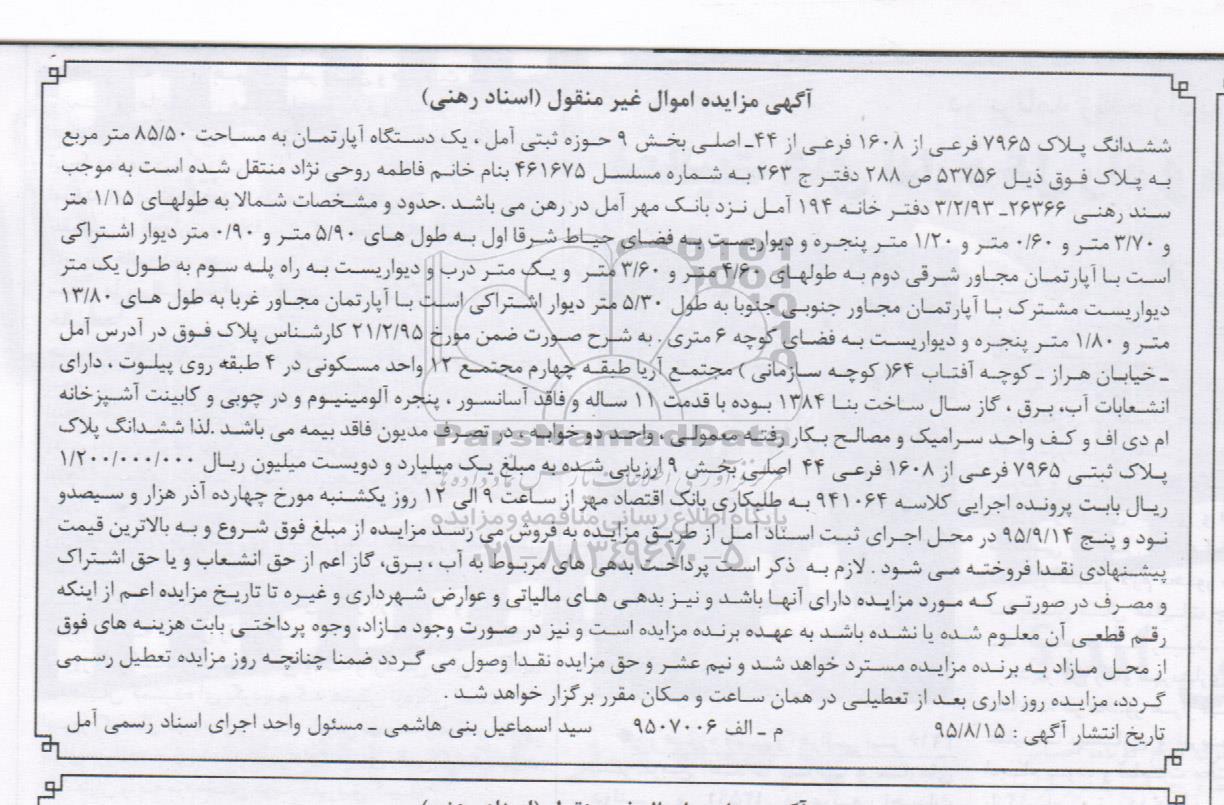 آگهی مزایده اموال غیر منقول (اسناد رهنی)
ششدانگ پلاک ۷۹۶۵ فرعی از ۱۶۰۸ فرعی از ۴۴ـ اصلی بخش ۹ حوزه ثبتی آمل ، یک دستگاه آپارتمان به مساحت ۸۵/۵۰ متر مربع
به پلاک فوق ذیل ۵۳۷۵۶ ص ۲۸۸ دفتر ج ۲۶۳ به شماره مسلسل ۴۶۱۶۷۵ بنام خانم فاطمه روحی نژاد منتقل شده است به موجب
سند رهنی ۲۶۳۶۶ـ ۳/۲/۹۳ دفتر خانه ۱۹۴ آمل نزد بانک مهر آمل در رهن می باشد .حدود و مشخصات شمالا به طولهای ۱/۱۵ متر
و ۳/۷۰ متر و ۰/۶۰ متر و ۱/۲۰ متر پنجره و دیواریست به فضای حیاط شرقا اول به طول های ۵/۹۰ متر و ۰/۹۰ متر دیوار اشتراکی
است با آپارتمان مجاور شرقی دوم به طولهای ۴/۶۰ متر و ۳/۶۰ متر و یک متر درب و دیواریست به راه پله سوم به طول یک متر
دیواریست مشترک با آپارتمان مجاور جنوبی جنوبا به طول ۵/۳۰ متر دیوار اشتراکی است با آپارتمان مجاور غربا به طول های ۱۳/۸۰
متر و ۱/۸۰ متر پنجره و دیواریست به فضای کوچه ۶ متری . به شرح صورت ضمن مورخ ۲۱/۲/۹۵ کارشناس پلاک فوق در آدرس آمل
ـ خیابان هراز ـ کوچه آفتاب ۶۴( کوچه سازمانی ) مجتمع آریا طبقه چهارم مجتمع ۱۲ واحد مسکونی در ۴ طبقه روی پیلوت ، دارای
انشعابات آب، برق ، گاز سال ساخت بنا ۱۳۸۴ بوده با قدمت ۱۱ ساله و فاقد آسانسور ، پنجره آلومینیوم و در چوبی و کابینت آشپزخانه
ام دی اف و کف واحد سرامیک و مصالح بکار رفته معمولی ، واحد دو خوابه ، در تصرف مدیون فاقد بیمه می باشد .لذا ششدانگ پلاک
پلاک ثبتی ۷۹۶۵ فرعی از ۱۶۰۸ فرعی ۴۴ اصلی بخش ۹ ارزیابی شده به مبلغ یک میلیارد و دویست میلیون ریال ۱/۲۰۰/۰۰۰/۰۰۰
ریال بابت پرونده اجرایی کلاسه ۹۴۱۰۶۴ به طلبکاری بانک اقتصاد مهر از ساعت ۹ الی ۱۲ روز یکشنبه مورخ چهارده آذر هزار و سیصدو
نود و پنج ۹۵/۹/۱۴ در محل اجرای ثبت اسناد آمل از طریق مزایده به فروش می رسد مزایده از مبلغ فوق شروع و به بالاترین قیمت
پیشنهادی نقدا فروخته می شود . لازم به ذکر است پرداخت بدهی های مربوط به آب ، برق، گاز اعم از حق انشعاب و یا حق اشتراک
و مصرف در صورتی که مورد مزایده دارای آنها باشد و نیز بدهی های مالیاتی و عوارض شهرداری و غیره تا تاریخ مزایده اعم از اینکه
رقم قطعی آن معلوم شده یا نشده باشد به عهده برنده مزایده است و نیز در صورت وجود مازاد، وجوه پرداختی بابت هزینه های فوق
از محل مازاد به برنده مزایده مسترد خواهد شد و نیم عشر و حق مزایده نقدا وصول می گردد ضمنا چنانچه روز مزایده تعطیل رسمی
گردد، مزایده روز اداری بعد از تعطیلی در همان ساعت و مکان مقرر برگزار خواهد شد .
تاریخ انتشار آگهی : ۹۵/۸/۱۵ م ـ الف ۹۵۰۷۰۰۶ سید اسماعیل بنی هاشمی ـ مسئول واحد اجرای اسناد رسمی آمل
ParsNamadData
پایگاه اطلاع رسانی مناقصه و مزایده
۰۲۱-۸۸۳۴۹۶۷۰-۵